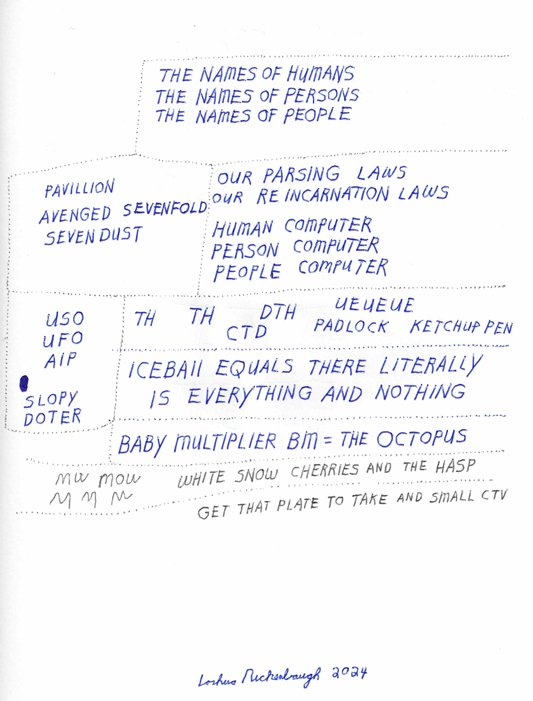 THE NAMES OF HUMANS
THE NAMES OF PERSONS
THE NAMES OF PEOPLE
PAVILLION
AVENGED SEVENFOLD
SEVENDUST
OUR PARSING LAWS
OUR REINCARNATION LAWS
HUMAN COMPUTER
PERSON COMPUTER
PEOPLE COMPUTER
USO
UFO
AIP
SLOPY
DOTER
TH TH DTH UEUEUE
CTD PADLOCK KETCHUP PEN
ICEBAII EQUALS THERE LITERALLY
IS EVERYTHING AND NOTHING
BABY MULTIPLIER BM = THE OCTOPUS
MW MOW WHITE SNOW CHERRIES AND THE HASP
GET THAT PLATE TO TAKE AND SMALL CTV
2024